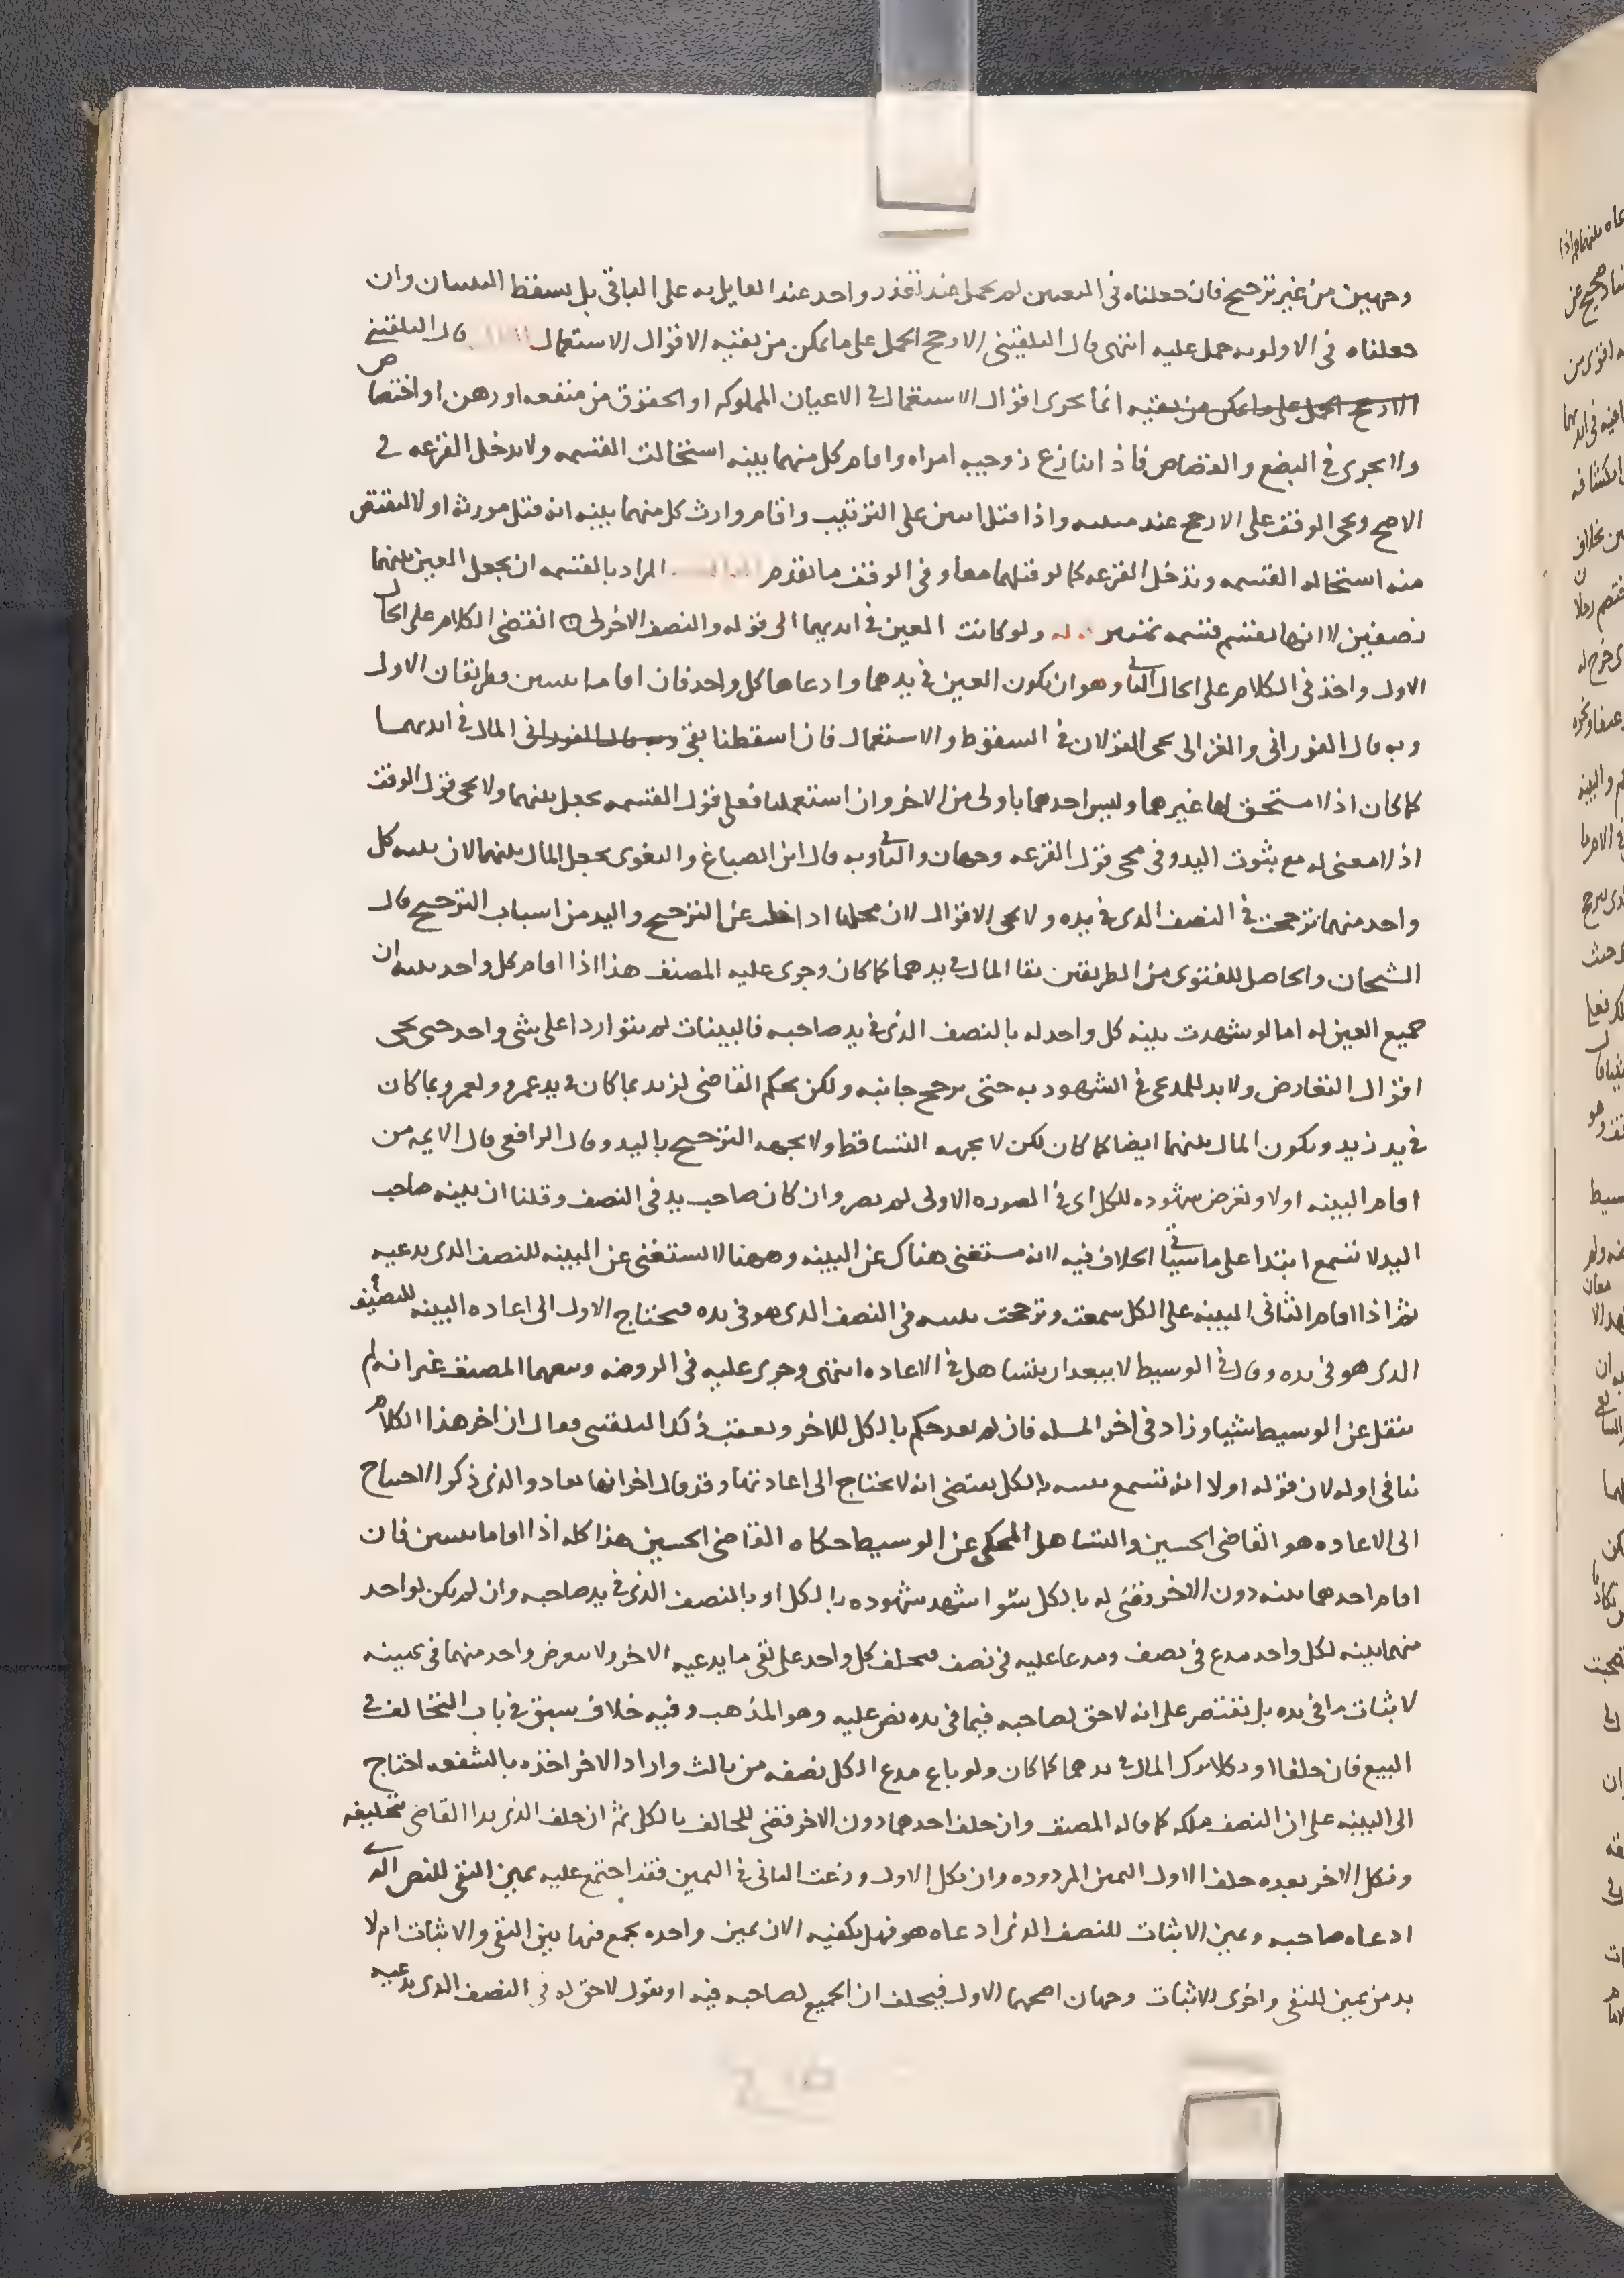 وجهين من غير ترجيح فان جعلناه في اليمين لم يحمل عند تعذر واحد عند القايل به على الباقي بل يسقط البينتان وان
جعلناه في الاولويه حمل عليه انتهى قال البلقيني الارجح الحمل على ما يمكن من بقيه الاقوال الاستعمال قال البلقيني
الارجح الحمل على ما يمكن من بقيه انما يجري اقوال الاستعمال في الاعيان المملوكه او الحقوق من منفعه او رهن او اختصاص
ولا يجري في البضع والقصاص فاذا تنازع زوجيه امراه واقام كل منهما بينه استحالت القسمه ولا يدخل القرعه في
الاصح ويجي الوقف على الارجح عند واذا قتل اثنين على الترتيب واقام وارث كل منهما بينه انه قتل مورثه اولا ليقتص
منه استحاله القسمه وتدخل القرعه كما لو قتلهما معا وفي الوقف ما تقدم المراد بالقسمه ان يجعل العين بينهما
نصفين لا انها تقسم قسمه تتميز ولو كانت العين في ايديهما الى قوله والنصف الاخر لي انقضى الكلام على الحال
الاول واخذ في الكلام على الحال الثاني وهو ان يكون العين في يدهما وادعاها كل واحد فان اقاما بينتين وطريقان الاول
وبه قال الفوراني والغزالي يجي القولان في السقوط والاستعمال فان اسقطنا بقي وبه قال الفوراني المال في ايديهما
كما كان اذ لا مستحق لها غيرهما وليس احدهما باولى من الاخر وان استعملنا فعلى قول القسمه يجعل بينهما ولا يجي قول الوقف
اذ لا معنى له مع ثبوت اليد وفي مجي قول القرعه وجهان والثاني وبه قال ابن الصباغ والبغوي يجعل المال بينهما لان بينه كل
واحد منهما ترجحت في النصف الذي في يده ولا يجي الاقوال لان محلها اذا خلت عن الترجيح واليد من اسباب الترجيح قال
الشيخان والحاصل للفتوى من الطريقين بقا المال في يدهما كما كان وجرى عليه المصنف هذا اذا اقام كل واحد بينه ان
جميع العين له اما لو شهدت بينه كل واحد له بالنصف الذي في يد صاحبه فالبينات لم يتواردا على شي واحد حتى يجي
اقوال التعارض ولا يد للمدعي في الشهود به حتى يرجح جانبه ولكن يحكم القاضي لزيد بما كان في يد عمرو ولعمرو بما كان
في يد زيد ويكون المال بينهما ايضا كما كان لكن لا بجهه التساقط ولا بجهه الترجيح باليد وقال الرافعي قال الايمه من
اقام البينه اولا وتعرض شهوده للكل اي في الصوره الاولى لم يضر وان كان صاحب يد في النصف وقلنا ان بينه صاحب
اليد لا تسمع ابتدا على ما سياتي الخلاف فيه لانه مستغني هناك عن البينه وههنا لا يستغني عن البينه للنصف الذي يدعيه
ثم اذا اقام الثاني البينه على الكل سمعت وترجحت بينته في النصف الذي هو في يده فيحتاج الاول الى اعاده البينه للنصف
الذي هو في يده وقال في الوسيط لا يبعد ان يتساهل في الاعاده انتهى وجرى عليه في الروضه وتبعهما المصنف غير انه لم
ينقل عن الوسيط شيا وزاد في اخر المسله فان لم يعد حكم بالكل للاخر وتعقب ذلك البلقيني فقال ان اخر هذا الكلام
ينافي اوله لان قوله اولا انه تسمع بينته بالكل يقتضي انه لا يحتاج الى اعادتها وقد قال اخرا انها تعاد والذي ذكر الاحتياج
الى الاعاده هو القاضي الحسين والتساهل المحكي عن الوسيط حكاه القاضي الحسين هذا كله اذا اقاما بينتين فان
اقام احدهما بينه دون الاخر وقضي له بالكل سوا شهد شهوده بالكل او بالنصف الذي في يد صاحبه وان لم يكن لواحد
منهما بينه لكل واحد مدع في نصف ومدعا عليه في نصف فيحلف كل واحد على نفي ما يدعيه الاخر ولا يتعرض واحد منهما في يمينه
لاثبات ما في يده بل يقتصر على انه لا حق لصاحبه فيما في يده نص عليه وهو المذهب وفيه خلاف سبق في باب التحالف في
البيع فان حلفا او نكلا ترك المال في يدهما كما كان ولو باع مدع الكل نصفه من ثالث واراد الاخر اخذه بالشفعه احتاج
الى البينه على ان النصف ملكه كما قاله المصنف وان حلف احدهما دون الاخر قضي للحالف بالكل ثم ان حلف الذي بدا القاضي بتحليفه
ونكل الاخر بعده حلف الاول اليمين المردوده وان نكل الاول ورغب الثاني في اليمين فقد اجتمع عليه يمين النفي للنصف الذي
ادعاه صاحبه ويمين الاثبات للنصف الذي ادعاه هو فهل يكفيه الان يمين واحده يجمع فيها بين النفي والاثبات ام لا
بد من يمين للنفي واخرى للاثبات وجهان اصحهما الاول فيحلف ان الجميع لصاحبه فيه او يقول لا حق له في النصف الذي يدعيه